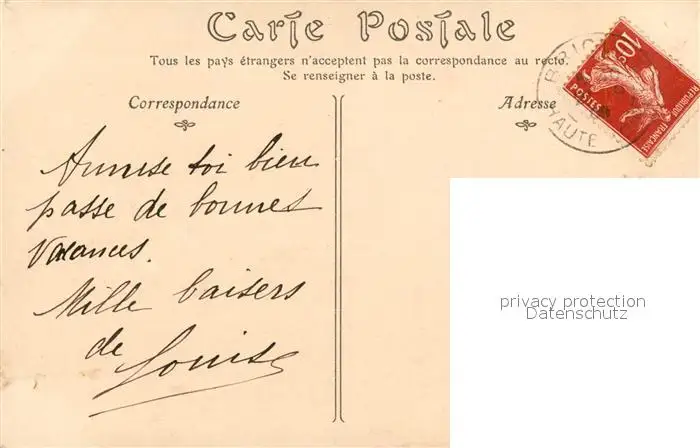 Carte Postale
Tous les pays étrangers n'acceptent pas la correspondance au recto.
Se renseigner à la poste.
Correspondance
Adresse
10c
POSTES
REPUBLIQUE FRANÇAISE
HAUTE
Amuse toi bien
passe de bonnes
vacances.
Mille baisers
de
Louise
privacy protection
Datenschutz